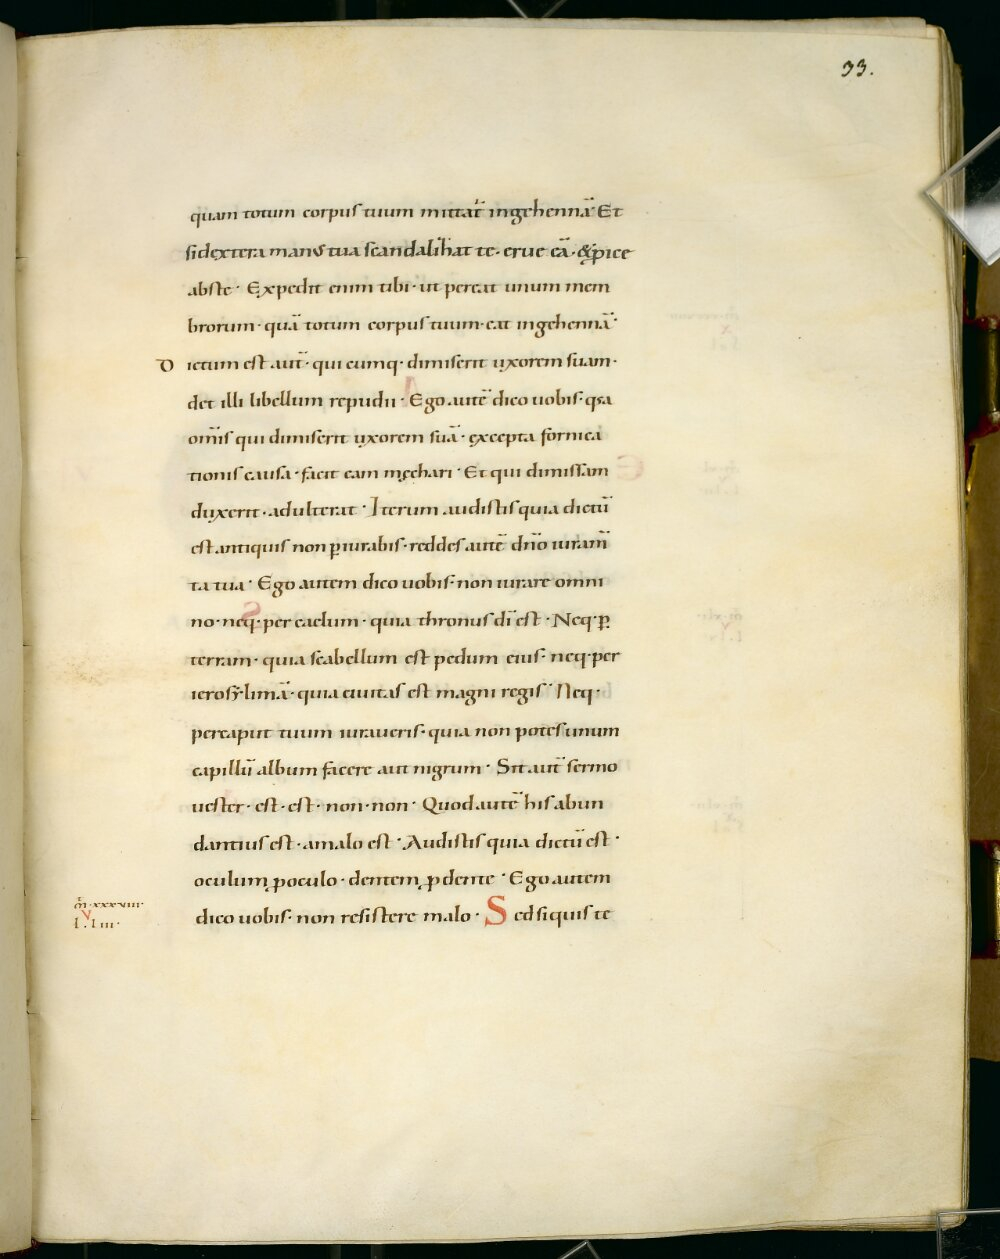 33.
quam totum corpus tuum mittat̄ ingehennā· Et
sidextera manus tua scandalihat te· erue eā· & ꝓice
abste· Expedit enim tibi· ut pereat unum mem
brorum· quā totum corpus tuum· eat ingehennā·
D ictum est aut̄· qui cumq· dimiserit uxorem suam·
det illi libellum repudii· Ego autē dico uobis· qa
om̄is qui dimiserit uxorem suā· excepta fornica
tionis causa· facit eam męchari· Et qui dimissam
duxerit· adulterat· Iterum audistis quia dictū
est antiquis non ꝑiurabis· reddes autē dn̄o iuram̄
ta tua· Ego autem dico uobis· non iurare omni
no· neq· per caelum· quia thronus dī est· Neq· ꝑ
terram· quia scabellum est pedum eius· neq· per
ierosylimā· quia ciuitas est magni regis· Neq·
percaput tuum iuraueris· quia non potes unum
capillū album facere aut nigrum· Sit aut̄ sermo
uester· est· est· non· non· Quod autē his abun
dantius est· amalo est· Audistis quia dictū est·
oculum ꝓoculo· dentem ꝓdente· Ego autem
dico uobis· non resistere malo· Sed siquis te
m̄· xxxviii·
V
l· liii·